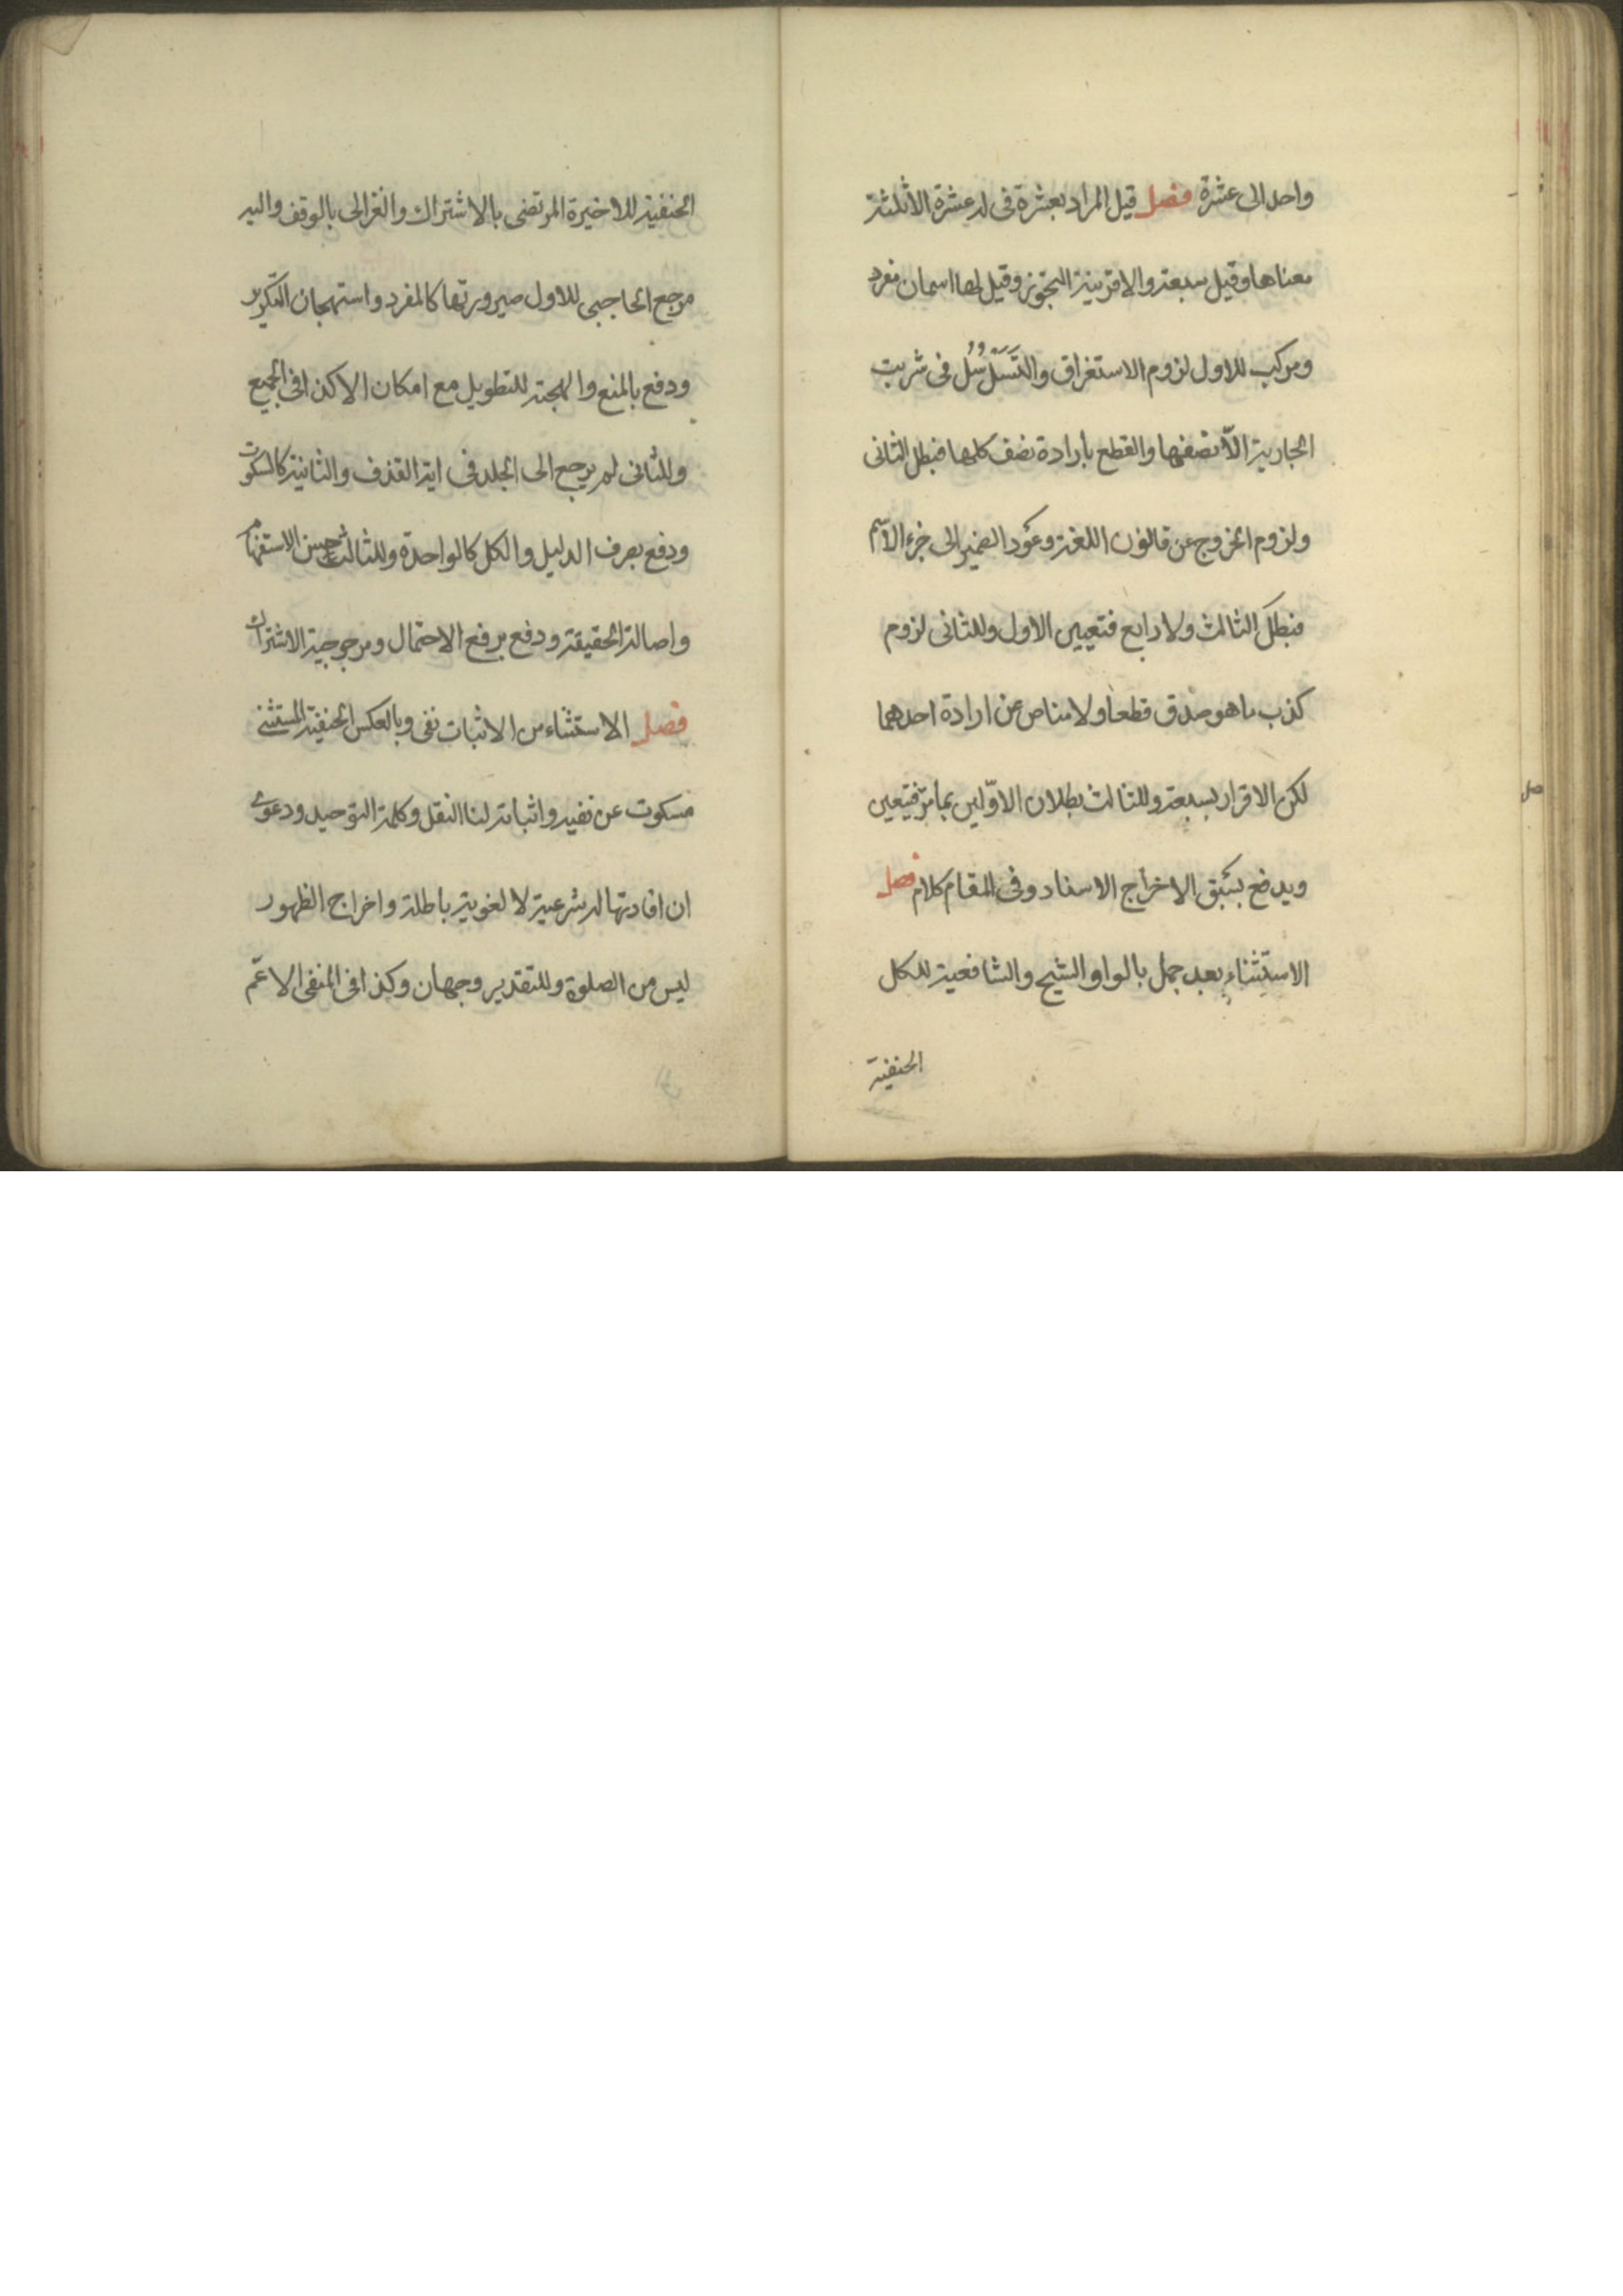 واحد الى عشرة فصل قيل المراد بعشرة فى له عشرة الا ثلثة
معناها وقيل سبعة والا قرينة التجوز وقيل لها اسمان مفرد
ومركب للاول لزوم الاستغراق والتسلسل فى شريت
الجارية الّا نصفها والقطع بارادة نصف كلها فبطل الثانى
ولزوم الخروج عن قانون اللغة وعود الضمير الى جزء الاسم
فبطل الثالث ولا رابع فتعيين الاول وللثانى لزوم
كذب ما هو صدق قطعا ولا مناص عن ارادة احدهما
لكن الاقرار بسبعة وللثالث بطلان الاوّلين بما مرّ فيتعين
ويدفع بسبق الاخراج الاسناد وفى المقام كلام فصل
الاستثناء بعد جمل بالواو الشيخ والشافعية للكل
الحنفية
الحنفية للاخيرة المرتضى بالاشتراك والغزالى بالوقف واليه
مرجع الحاجبى للاول صيرورتها كالمفرد واستهجان التكرير
ودفع بالمنع والهجنة للتطويل مع امكان الا كذا فى الجميع
وللثانى لم يرجع الى الجلد فى اية القذف والثانية كالسكوت
ودفع بصرف الدليل والكل كالواحدة وللثالث حسن الاستفهام
واصالة الحقيقة ودفع برفع الاحتمال ومرجوحية الاشتراك
فصل الاستثناء من الاثبات نفى وبالعكس الحنفية المستثنى
مسكوت عن نفيه واثباته لنا النقل وكلمة التوحيد ودعوى
ان افادتها له شرعية لا لغوية باطلة واخراج الظهور
ليس من الصلوة وللتقدير وجهان وكذا فى المنفى الاعمّ